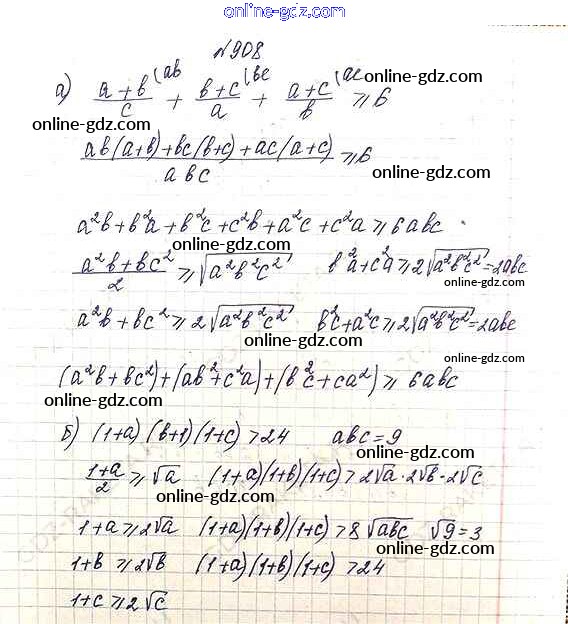 online-gdz.com
№908
а) (a+b)/c (ab + (b+c)/a (bc + (a+c)/b (ac ≥ 6
online-gdz.com
online-gdz.com
online-gdz.com
online-gdz.com
(ab(a+b)+bc(b+c)+ac(a+c))/abc ≥ 6
online-gdz.com
a²b+b²a+b²c+c²b+a²c+c²a ≥ 6abc
online-gdz.com
(a²b+bc²)/2 ≥ √(a²b²c²) b²a+c²a ≥ 2√(a²b²c²) = 2abc
online-gdz.com
a²b+bc² ≥ 2√(a²b²c²) b²c+a²c ≥ 2√(a²b²c²) = 2abc
online-gdz.com
online-gdz.com
(a²b+bc²)+(ab²+c²a)+(b²c+ca²) ≥ 6abc
online-gdz.com
б) (1+a)(b+1)(1+c) > 24 abc=9
online-gdz.com
(1+a)/2 ≥ √a (1+a)(1+b)(1+c) > 2√a·2√b·2√c
online-gdz.com
1+a ≥ 2√a (1+a)(1+b)(1+c) > 8√abc √9=3
online-gdz.com
online-gdz.com
1+b ≥ 2√b (1+a)(1+b)(1+c) > 24
1+c ≥ 2√c
online-gdz.com